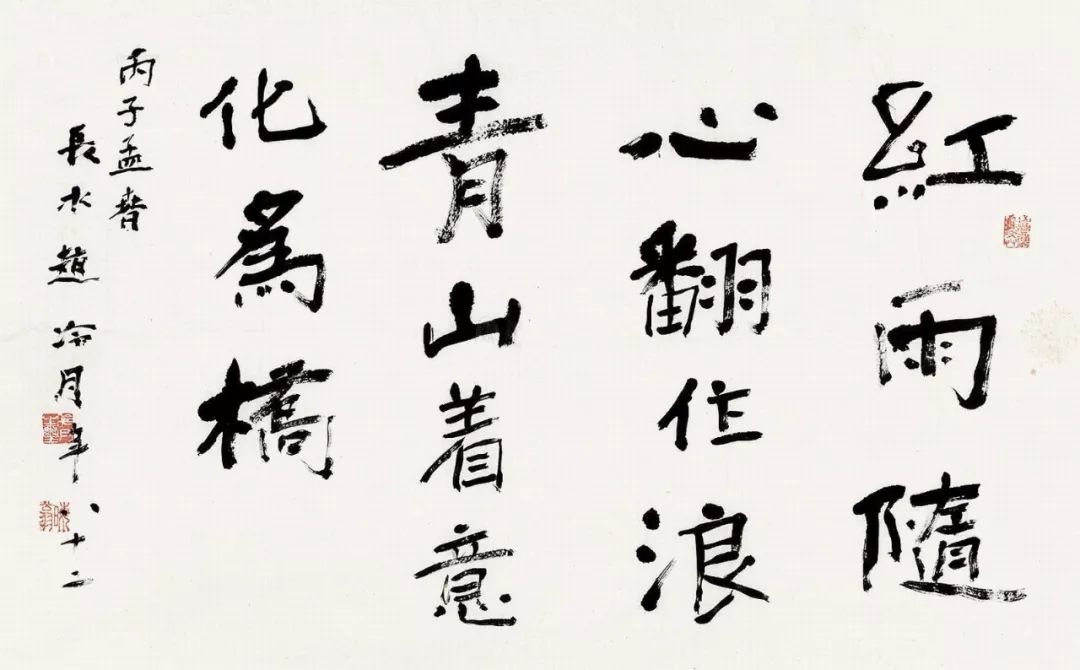 紅雨隨
心翻作浪
青山着意
化為橋
丙子孟春
長水趙冷月年八十二